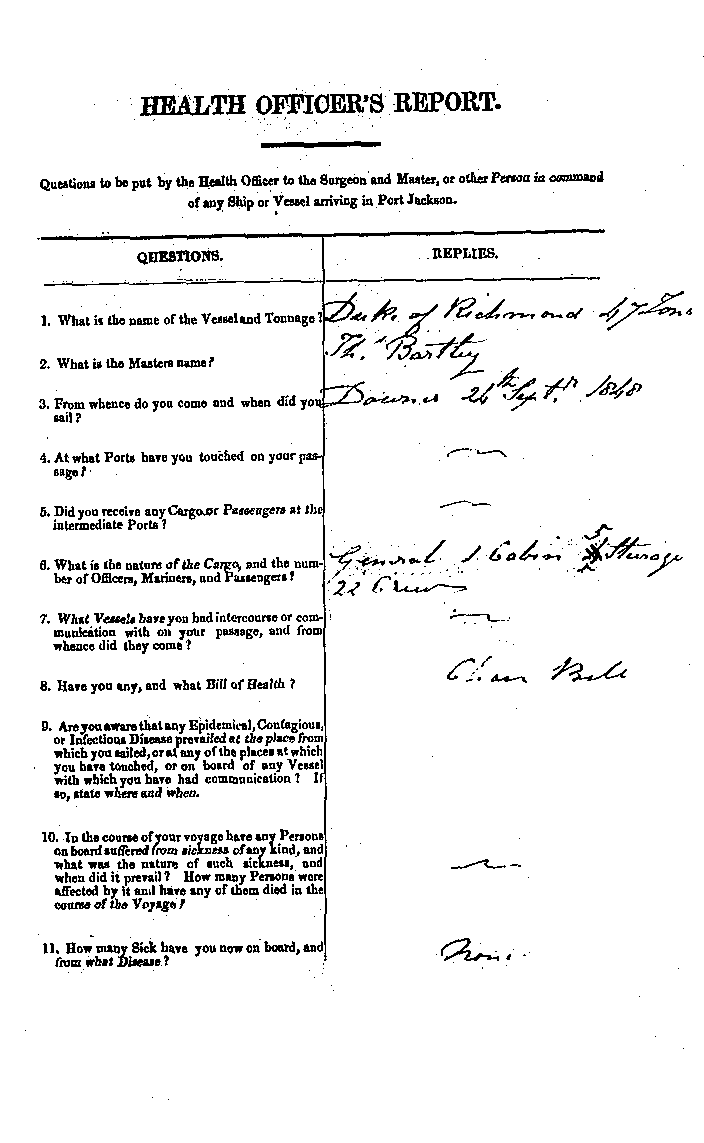 HEALTH OFFICER'S REPORT.
Questions to be put by the Health Officer to the Surgeon and Master, or other Person in command
of any Ship or Vessel arriving in Port Jackson.
QUESTIONS.
REPLIES.
1. What is the name of the Vessel and Tonnage?
Duke of Richmond 47 Tons
2. What is the Masters name?
Thos Bartley
3. From whence do you come and when did you
sail?
Downs 24th Septr. 1848
4. At what Ports have you touched on your pas-
sage?
5. Did you receive any Cargo or Passengers at the
intermediate Ports?
6. What is the nature of the Cargo, and the num-
ber of Officers, Mariners, and Passengers?
General 1 Cabin 5 Sturage
22 Crew
7. What Vessels have you had intercourse or com-
munication with on your passage, and from
whence did they come?
8. Have you any, and what Bill of Health?
Clean Bill
9. Are you aware that any Epidemical, Contagious,
or Infectious Disease prevailed at the place from
which you sailed, or at any of the places at which
you have touched, or on board of any Vessel
with which you have had communication? If
so, state where and when.
10. In the course of your voyage have any Persons
on board suffered from sickness of any kind, and
what was the nature of such sickness, and
when did it prevail? How many Persons were
affected by it and have any of them died in the
course of the Voyage?
11. How many Sick have you now on board, and
from what Disease?
None